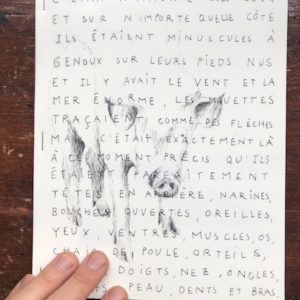 ET SUR N'IMPORTE QUELLE CÔTE
ILS ÉTAIENT MINUSCULES À
GENOUX SUR LEURS PIEDS NUS
ET IL Y AVAIT LE VENT ET LA
MER ÉNORME, LES MOUETTES
TRAÇAIENT COMME DES FLÈCHES
MAIS C'ÉTAIT EXACTEMENT LÀ
À CE MOMENT PRÉCIS QU'ILS
ÉTAIENT PARFAITEMENT
TÊTES EN ARRIÈRE, NARINES,
BOUCHES OUVERTES, OREILLES,
YEUX, VENTRES, MUSCLES, OS,
CHAIR DE POULE, ORTEILS,
DOIGTS, NEZ, ONGLES,
PEAU, DENTS ET BRAS,